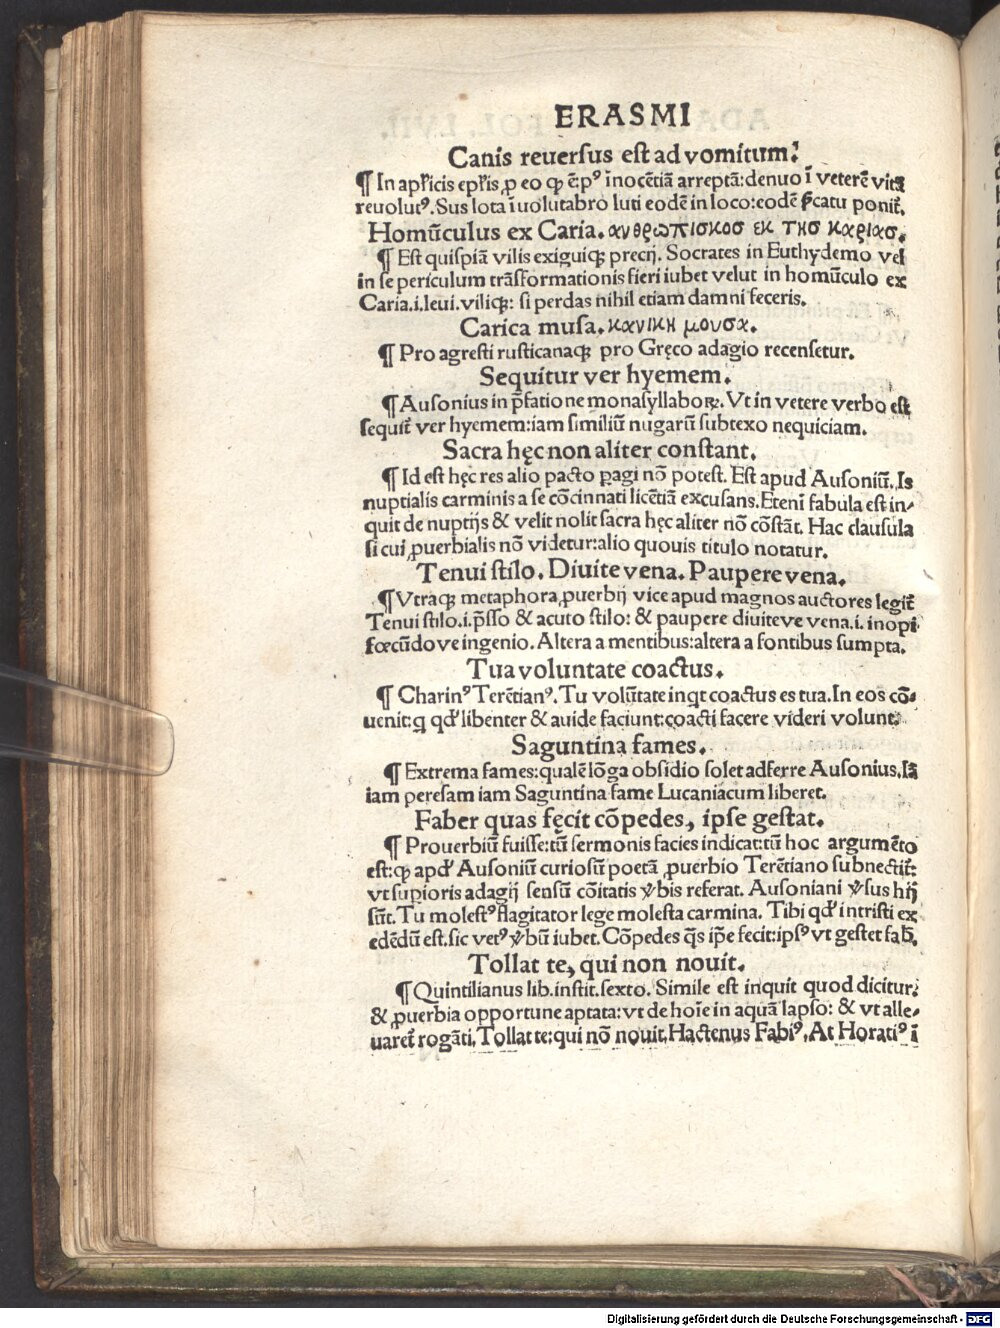 ERASMI
Canis reuersus est ad vomitum:
¶ In apl̃icis epl̃is ꝓ eo ꝙ ē: pꝰ īnocētiā arreptā: denuo ī veterē vitā
reuolutꝰ. Sus lota ī uolutabro luti eodē in loco: eodē p̃catu ponit᷑.
Homūculus ex Caria. ανθρωπισκοσ εκ τησ καριασ.
¶ Est quispiā vilis exiguiqꝫ precij. Socrates in Euthydemo vel
in se periculum trāsformationis fieri iubet velut in homūculo ex
Caria.i.leui.viliqꝫ: si perdas nihil etiam damni feceris.
Carica musa. κανικη μουσα.
¶ Pro agresti rusticanaqꝫ pro Gręco adagio recensetur.
Sequitur ver hyemem.
¶ Ausonius in p̃fatione monasyllaboꝝ. Vt in vetere verbo est
sequit᷑ ver hyemem: iam similiū nugarū subtexo nequiciam.
Sacra hęc non aliter constant.
¶ Id est hęc res alio pacto ꝑagi nō potest. Est apud Ausoniū. Is
nuptialis carminis a se cōcinnati licētiā excusans. Etenī fabula est in-
quit de nuptijs & velit nolit sacra hęc aliter nō cōstāt. Hac clausula
si cui ꝓuerbialis nō videtur: alio quouis titulo notatur.
Tenui stilo. Diuite vena. Paupere vena.
¶ Vtraqꝫ metaphora ꝓuerbij vice apud magnos auctores legit᷑
Tenui stilo.i.p̃sso & acuto stilo: & paupere diuiteve vena.i. inopi
fœcūdove ingenio. Altera a mentibus: altera a fontibus sumpta.
Tua voluntate coactus.
¶ Charinꝰ Terētianꝰ. Tu volūtate inqt coactus es tua. In eos cō-
uenit: q qđ libenter & auide faciunt: coacti facere videri volunt.
Saguntina fames.
¶ Extrema fames: qualē lōga obsidio solet adferre Ausonius. Iā
iam peresam iam Saguntina fame Lucaniacum liberet.
Faber quas fęcit cōpedes, ipse gestat.
¶ Prouerbiū fuisse: tū sermonis facies indicat: tū hoc argumēto
est: ꝙ apđ Ausoniū curiosū poetā ꝓuerbio Terētiano subnectit᷑:
vt supioris adagij sensū cōitatis v̉bis referat. Ausoniani v̉sus hij
sūt. Tu molestꝰ flagitator lege molesta carmina. Tibi qđ intristi ex
edēdū est. sic vetꝰ v̉bū iubet. Cōpedes q̄s ip̄e fecit: ipsꝰ vt gestet fab̄.
Tollat te, qui non nouit.
¶ Quintilianus lib. instit. sexto. Simile est inquit quod dicitur:
& ꝓuerbia opportune aptata: vt de hoīe in aquā lapso: & vt alle-
uaret᷑ rogāti, Tollat te: qui nō nouit. Hactenus Fabiꝰ, At Horatiꝰ ī
Digitalisierung gefördert durch die Deutsche Forschungsgemeinschaft - DFG